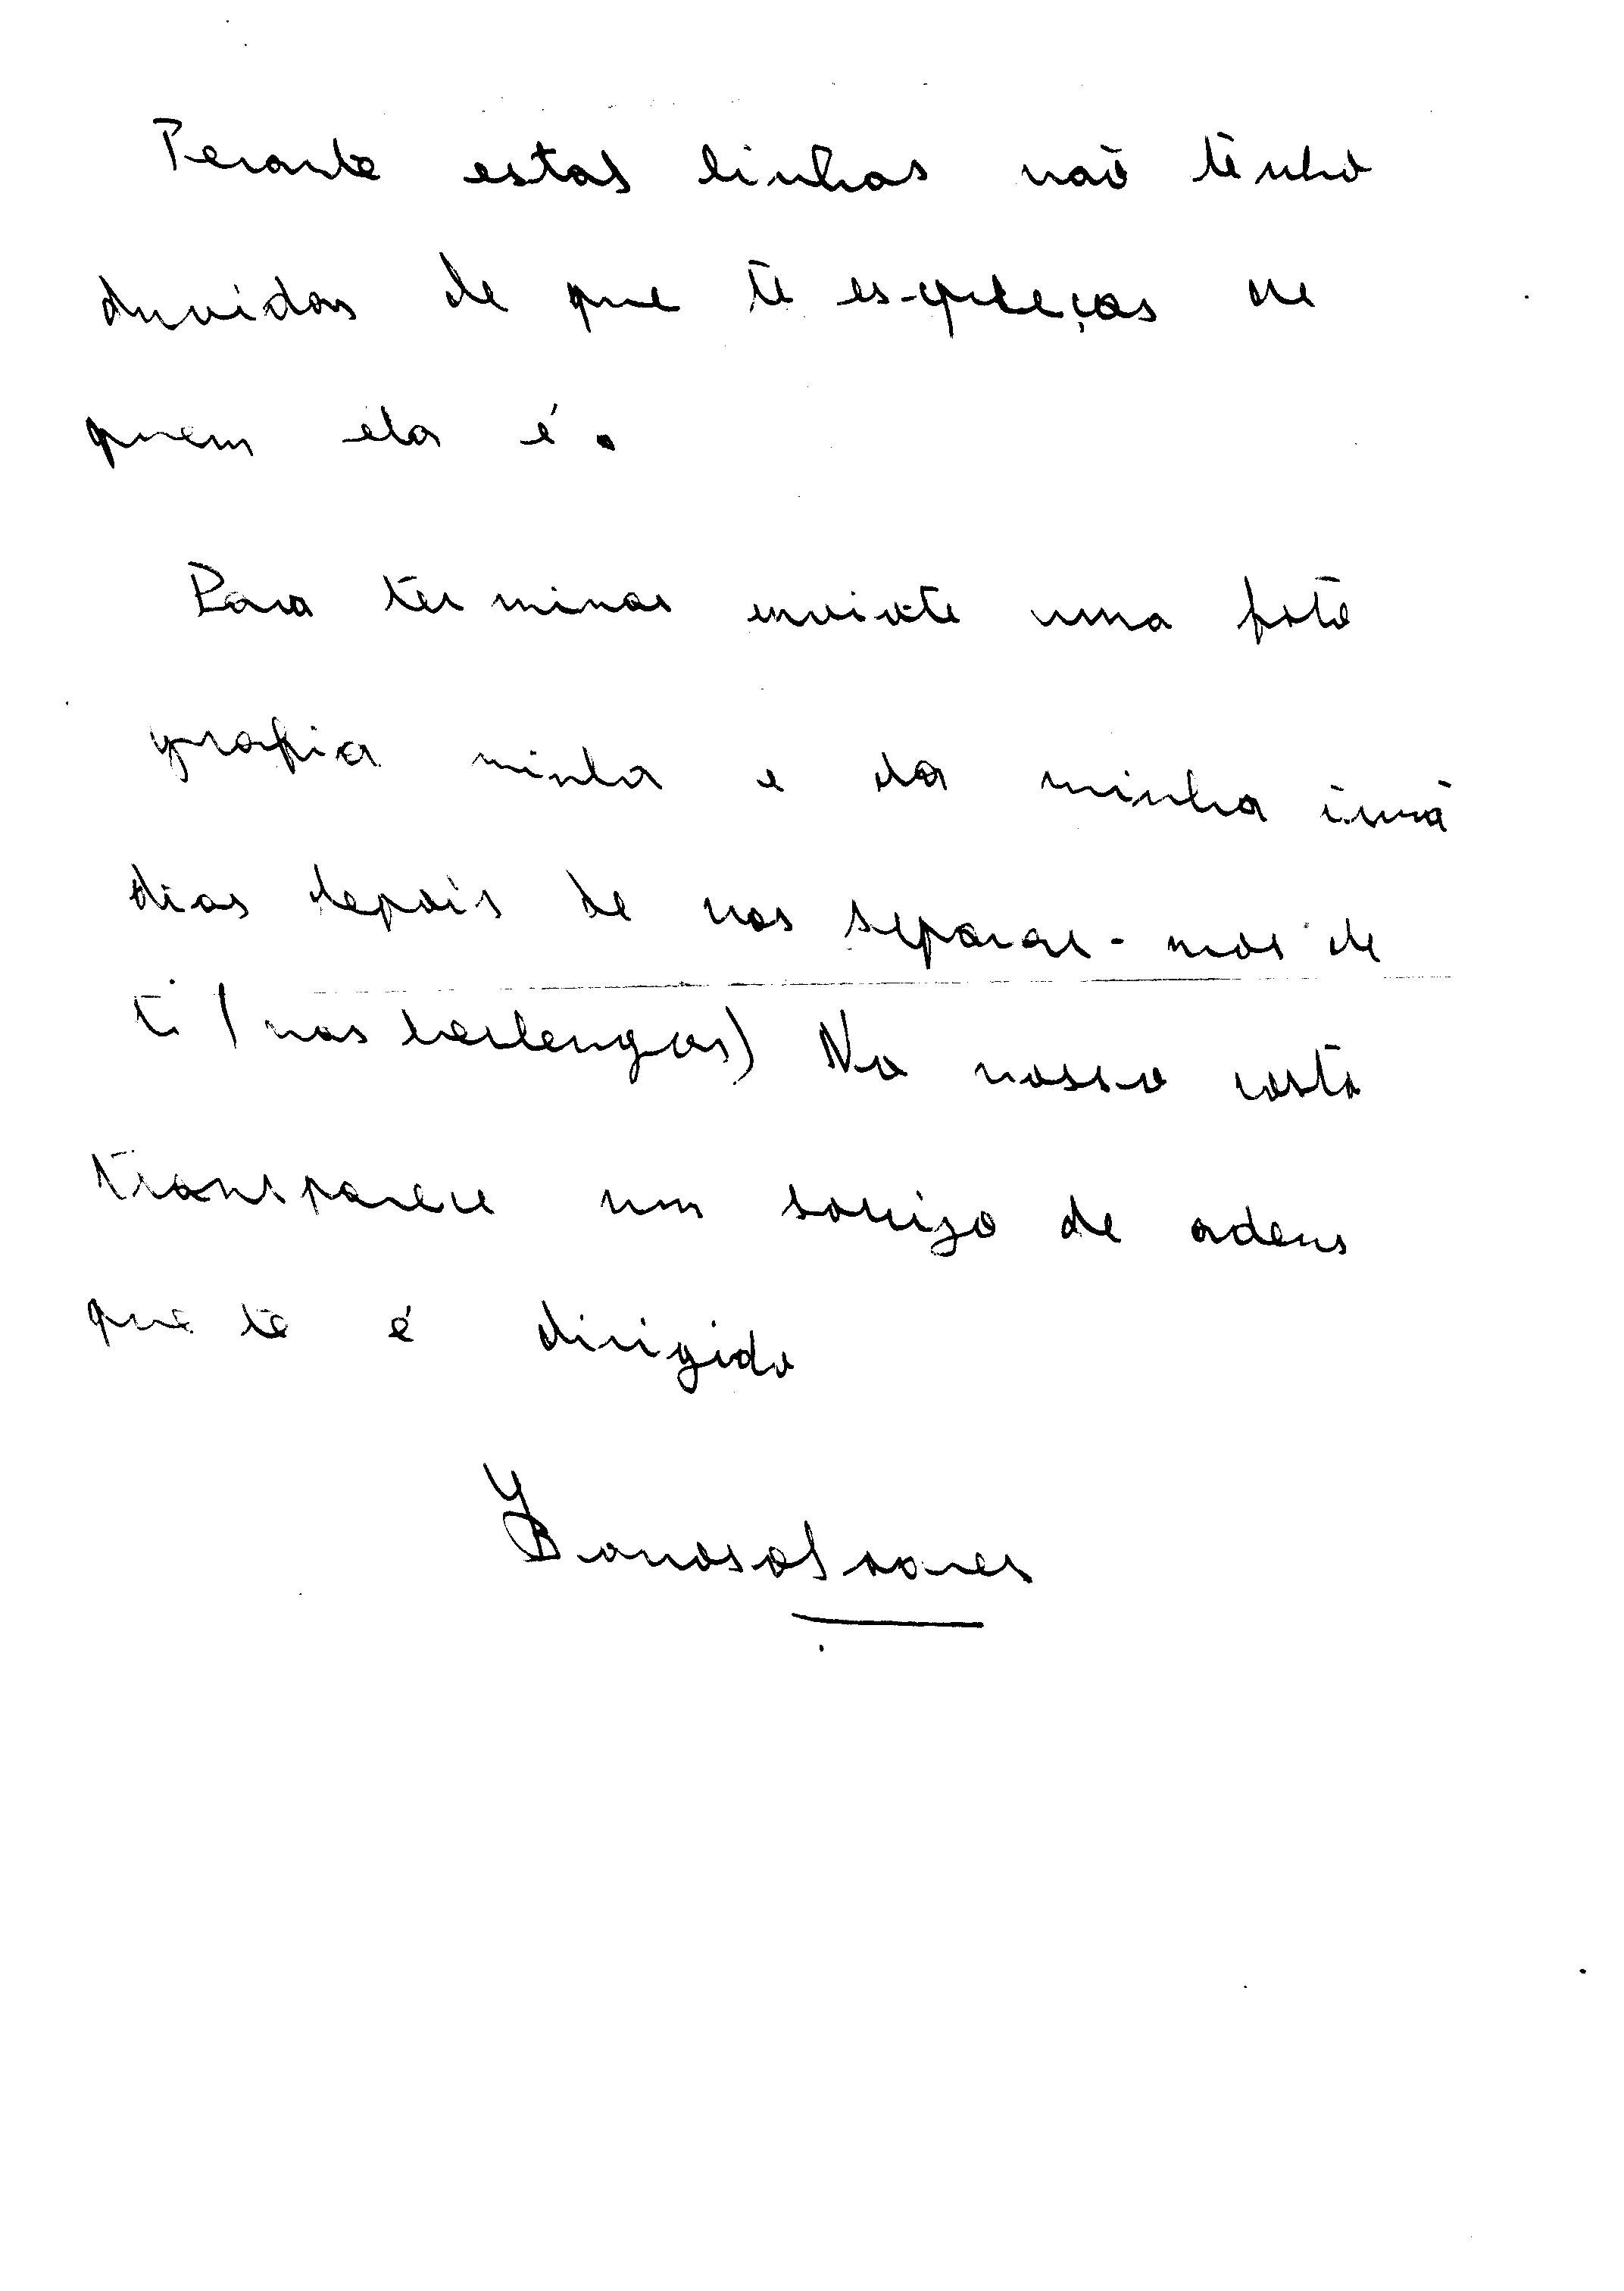 Perante estas linhas não tenho
duvidas de que te esqueças de
quem ela é.
Para terminar envio-te uma foto
grafia minha e da minha irmã
dias depois de nos separar-mos de
ti (nas berlengas) No nosso rosto
transparece um sorriso de adeus
que te é dirigido